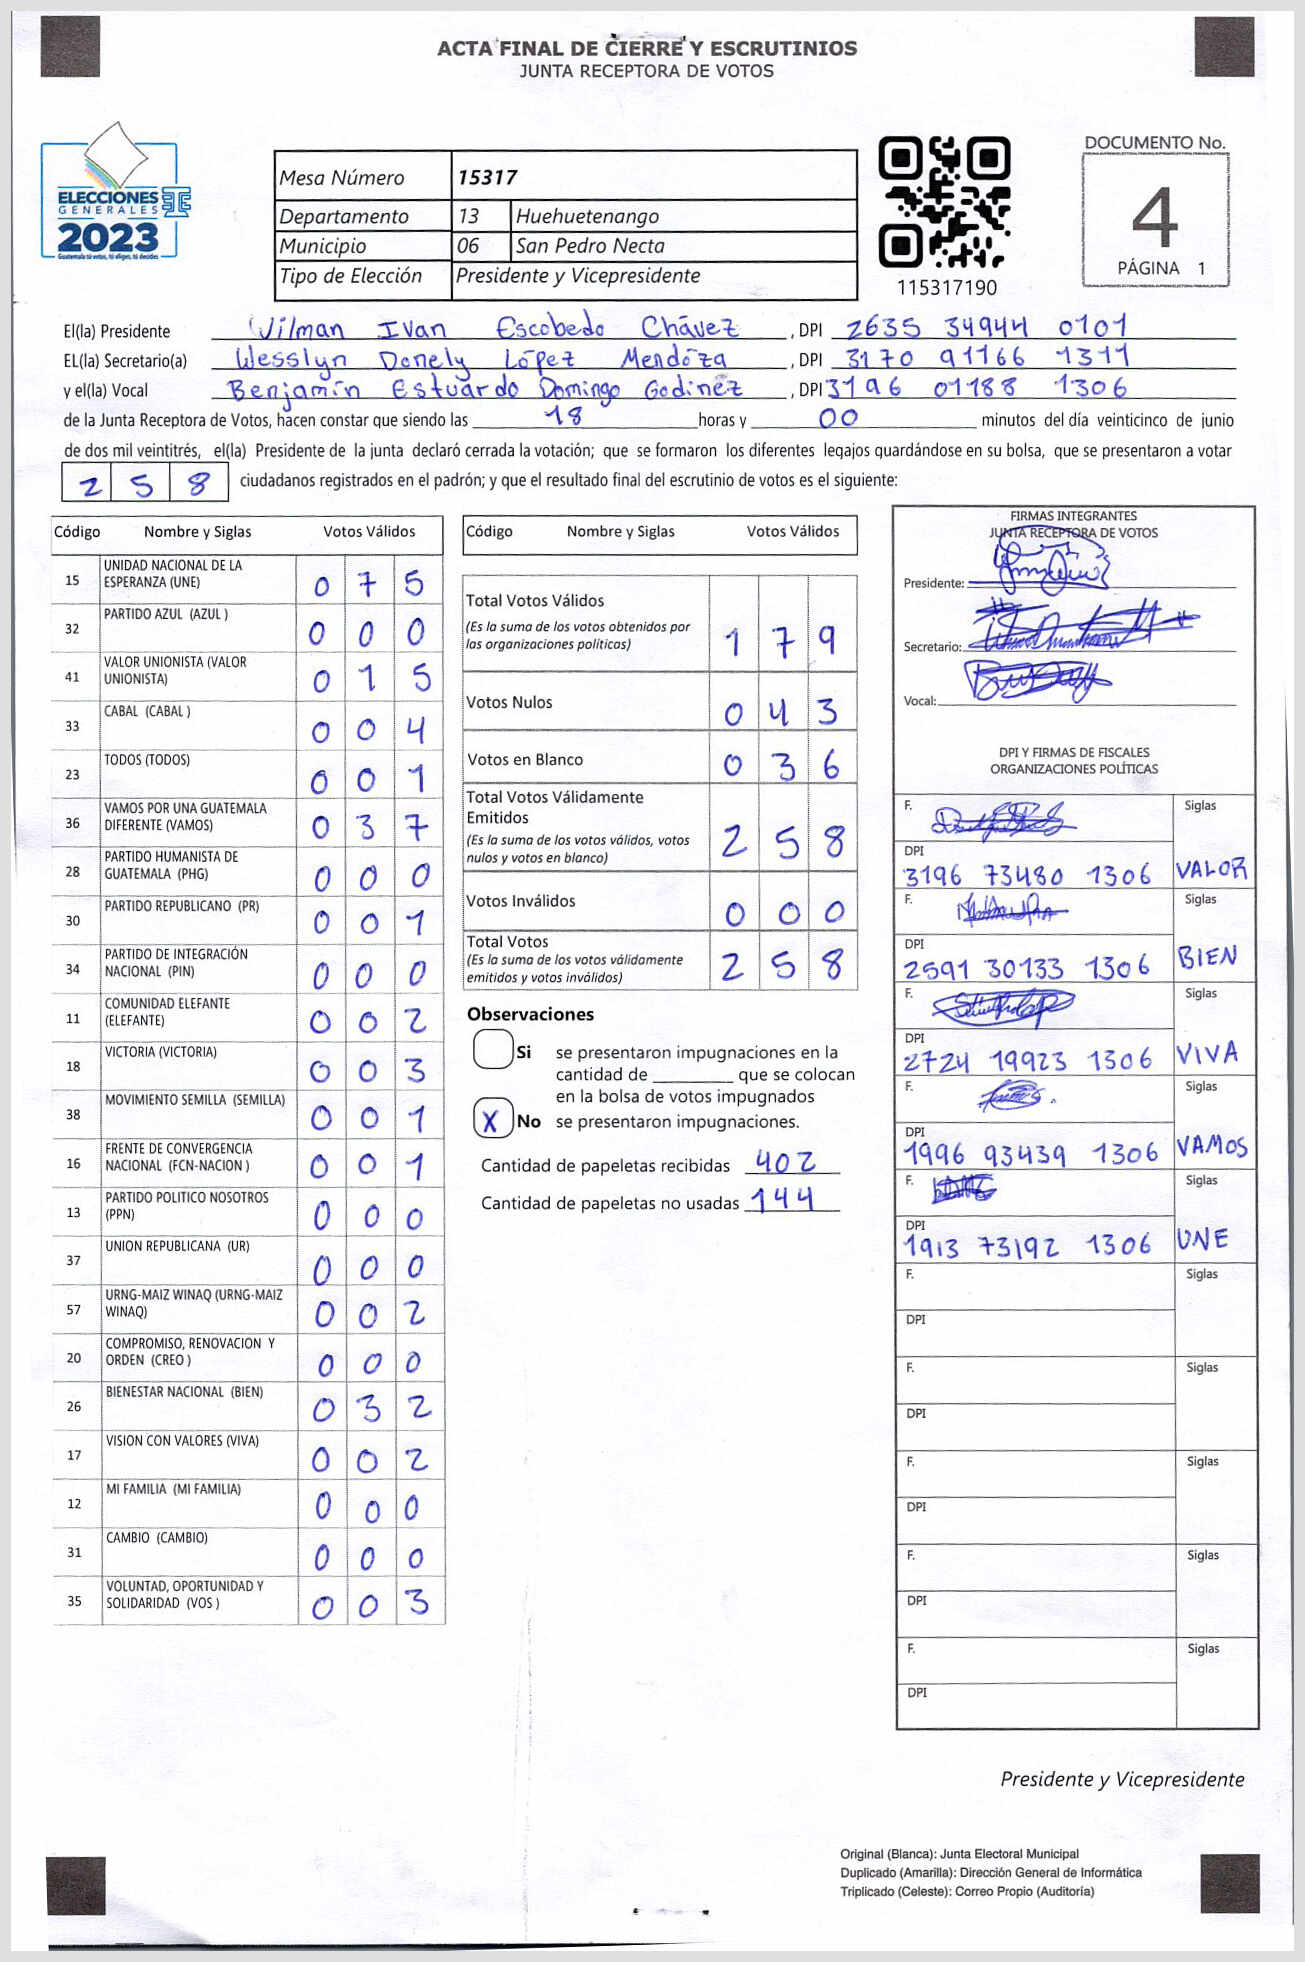 ACTA FINAL DE CIERRE Y ESCRUTINIOS
JUNTA RECEPTORA DE VOTOS
ELECCIONES
GENERALES
2023
Guatemala tú votas, tú eliges, tú decides
Mesa Número 15317
Departamento 13 Huehuetenango
Municipio 06 San Pedro Necta
Tipo de Elección Presidente y Vicepresidente
115317190
DOCUMENTO No.
4
PÁGINA 1
El(la) Presidente Wilman Ivan Escobedo Chávez , DPI 2635 34944 0101
EL(la) Secretario(a) Wesslyn Donely López Mendóza , DPI 3170 91166 1311
y el(la) Vocal Benjamín Estuardo Domingo Godinéz , DPI 3196 01188 1306
de la Junta Receptora de Votos, hacen constar que siendo las 18 horas y 00 minutos del día veinticinco de junio
de dos mil veintitrés, el(la) Presidente de la junta declaró cerrada la votación; que se formaron los diferentes legajos guardándose en su bolsa, que se presentaron a votar
2 5 8 ciudadanos registrados en el padrón; y que el resultado final del escrutinio de votos es el siguiente:
Código Nombre y Siglas Votos Válidos
15 UNIDAD NACIONAL DE LA
ESPERANZA (UNE) 0 7 5
32 PARTIDO AZUL (AZUL ) 0 0 0
41 VALOR UNIONISTA (VALOR
UNIONISTA) 0 1 5
33 CABAL (CABAL ) 0 0 4
23 TODOS (TODOS) 0 0 1
36 VAMOS POR UNA GUATEMALA
DIFERENTE (VAMOS) 0 3 7
28 PARTIDO HUMANISTA DE
GUATEMALA (PHG) 0 0 0
30 PARTIDO REPUBLICANO (PR) 0 0 1
34 PARTIDO DE INTEGRACIÓN
NACIONAL (PIN) 0 0 0
11 COMUNIDAD ELEFANTE
(ELEFANTE) 0 0 2
18 VICTORIA (VICTORIA) 0 0 3
38 MOVIMIENTO SEMILLA (SEMILLA) 0 0 1
16 FRENTE DE CONVERGENCIA
NACIONAL (FCN-NACION ) 0 0 1
13 PARTIDO POLITICO NOSOTROS
(PPN) 0 0 0
37 UNION REPUBLICANA (UR) 0 0 0
57 URNG-MAIZ WINAQ (URNG-MAIZ
WINAQ) 0 0 2
20 COMPROMISO, RENOVACION Y
ORDEN (CREO ) 0 0 0
26 BIENESTAR NACIONAL (BIEN) 0 3 2
17 VISION CON VALORES (VIVA) 0 0 2
12 MI FAMILIA (MI FAMILIA) 0 0 0
31 CAMBIO (CAMBIO) 0 0 0
35 VOLUNTAD, OPORTUNIDAD Y
SOLIDARIDAD (VOS ) 0 0 3
Código Nombre y Siglas Votos Válidos
Total Votos Válidos
(Es la suma de los votos obtenidos por
las organizaciones políticas) 1 7 9
Votos Nulos 0 4 3
Votos en Blanco 0 3 6
Total Votos Válidamente
Emitidos
(Es la suma de los votos válidos, votos
nulos y votos en blanco) 2 5 8
Votos Inválidos 0 0 0
Total Votos
(Es la suma de los votos válidamente
emitidos y votos inválidos) 2 5 8
Observaciones
Si se presentaron impugnaciones en la
cantidad de ________ que se colocan
en la bolsa de votos impugnados
X No se presentaron impugnaciones.
Cantidad de papeletas recibidas 402
Cantidad de papeletas no usadas 144
FIRMAS INTEGRANTES
JUNTA RECEPTORA DE VOTOS
Presidente:
Secretario:
Vocal:
DPI Y FIRMAS DE FISCALES
ORGANIZACIONES POLÍTICAS
F. Siglas
DPI
3196 73480 1306 VALOR
F. Siglas
DPI
2591 30133 1306 BIEN
F. Siglas
DPI
2724 19923 1306 VIVA
F. Siglas
DPI
1996 93439 1306 VAMOS
F. Siglas
DPI
1913 73192 1306 UNE
F. Siglas
DPI
F. Siglas
DPI
F. Siglas
DPI
F. Siglas
DPI
F. Siglas
DPI
Presidente y Vicepresidente
Original (Blanca): Junta Electoral Municipal
Duplicado (Amarilla): Dirección General de Informática
Triplicado (Celeste): Correo Propio (Auditoría)